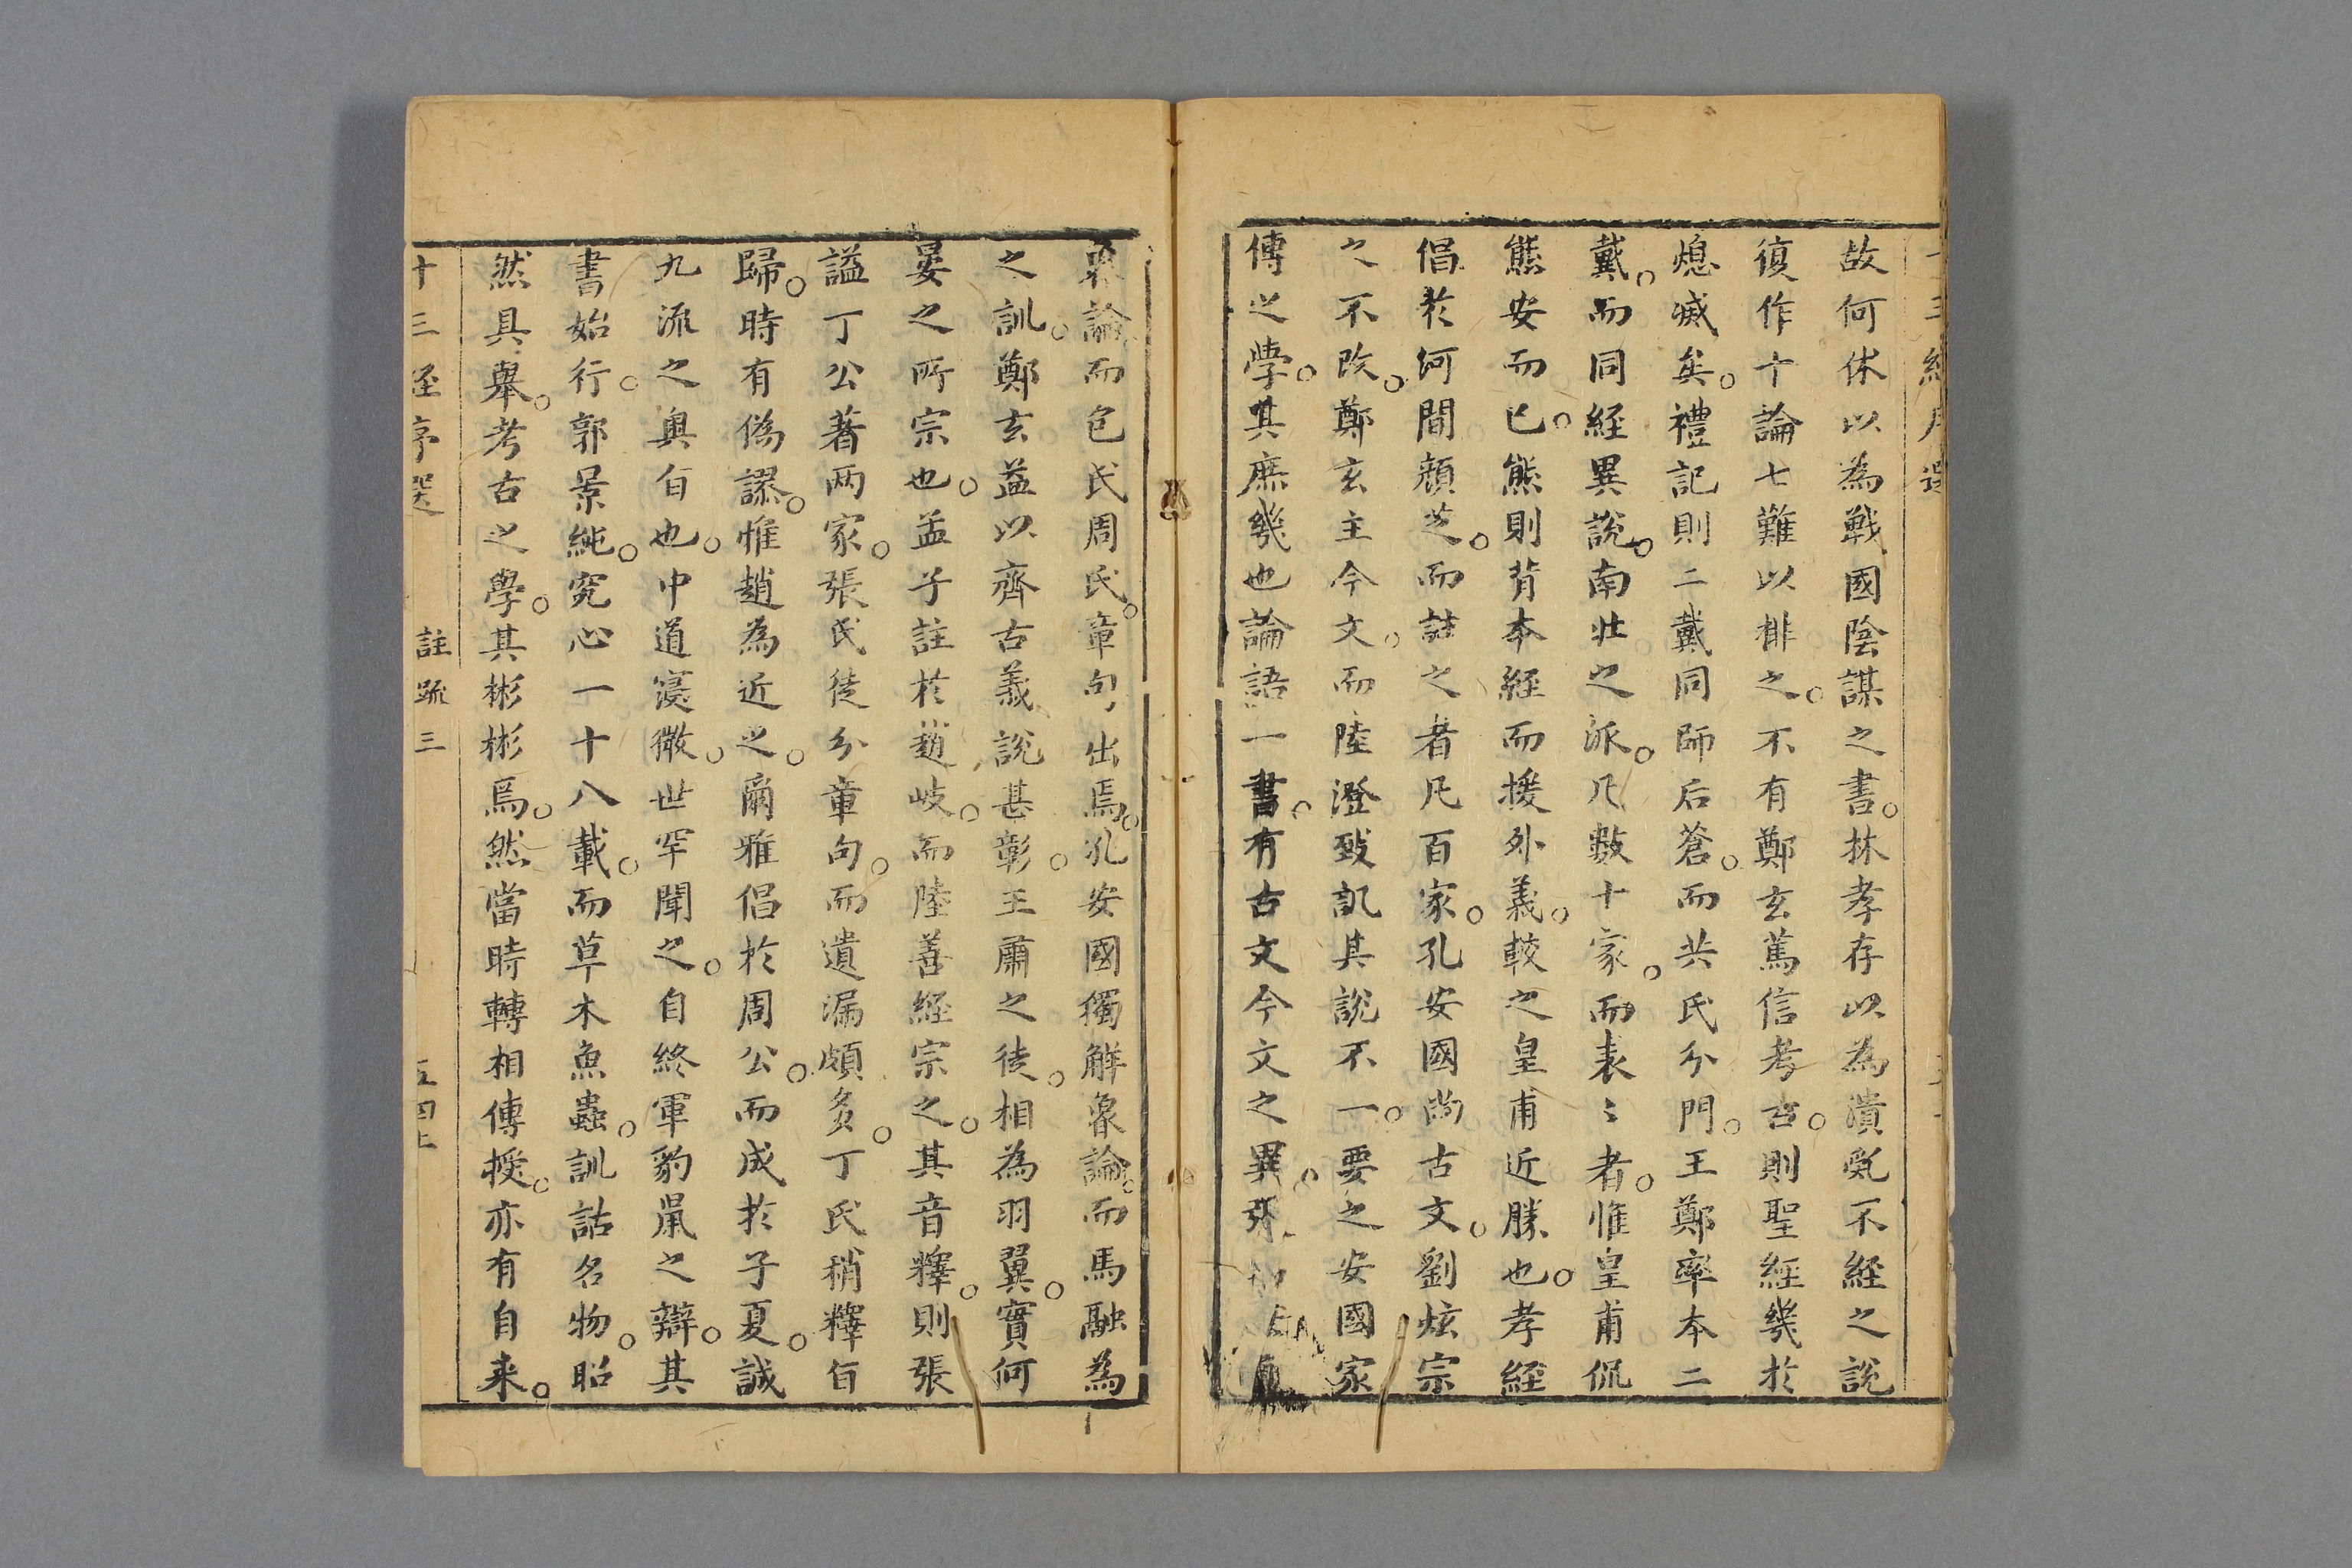 故何休以為戰國陰謀之書。林孝存以為瀆亂不経之說
復作十論七難以排之。不有鄭玄篤信考古。則聖経幾於
熄滅矣。禮記則二戴同師后蒼。而共氏分門。王鄭率本二
戴。而同経異說。南壮之派。凡數十家。而表〻者。惟皇甫侃
熊安而已。熊則背本経而援外義。較之皇甫近勝也。孝経
倡於河間顔芝。而註之者凡百家。孔安國尚古文。劉炫宗
之不改。鄭玄主今文。而陸澄致訊其說不一。要之安國家
傳之學。其庶幾也論語一書。有古文今文之異。張
論而包氏周氏。章句出焉。孔安國獨解魯論。而馬融為
之訓。鄭玄益以齊古義說甚彰。王肅之徒。相為羽翼。實何
晏之所宗也。孟子註於趙岐。而陸善経宗之。其音釋。則張
謚丁公著两家。張氏徒分章句。而遺漏頗多。丁氏稍釋旨
歸。時有偽謬。惟趙為近之。爾雅倡於周公。而成於子夏。誠
九流之奧旨也。中道寖微。世罕聞之。自終軍豹鼠之辯。其
書始行。郭景純。究心一十八載。而草木魚蟲。訓詁名物。昭
然具舉。考古之學。其彬彬焉。然當時轉相傳授。亦有自来。
十三经序選 註疏三